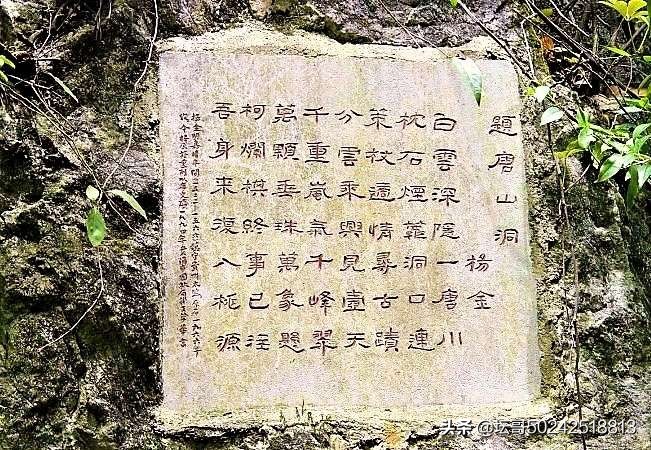 題唐山洞
楊金
白雲深隱一唐川
枕石煙蘿洞口連
策杖適情尋古蹟
分雲乘興見壺天
千重嵐氣千峰翠
萬顆垂珠萬象懸
柯爛棋終事已往
吾身來復入桃源
头条@坛哥50242518813